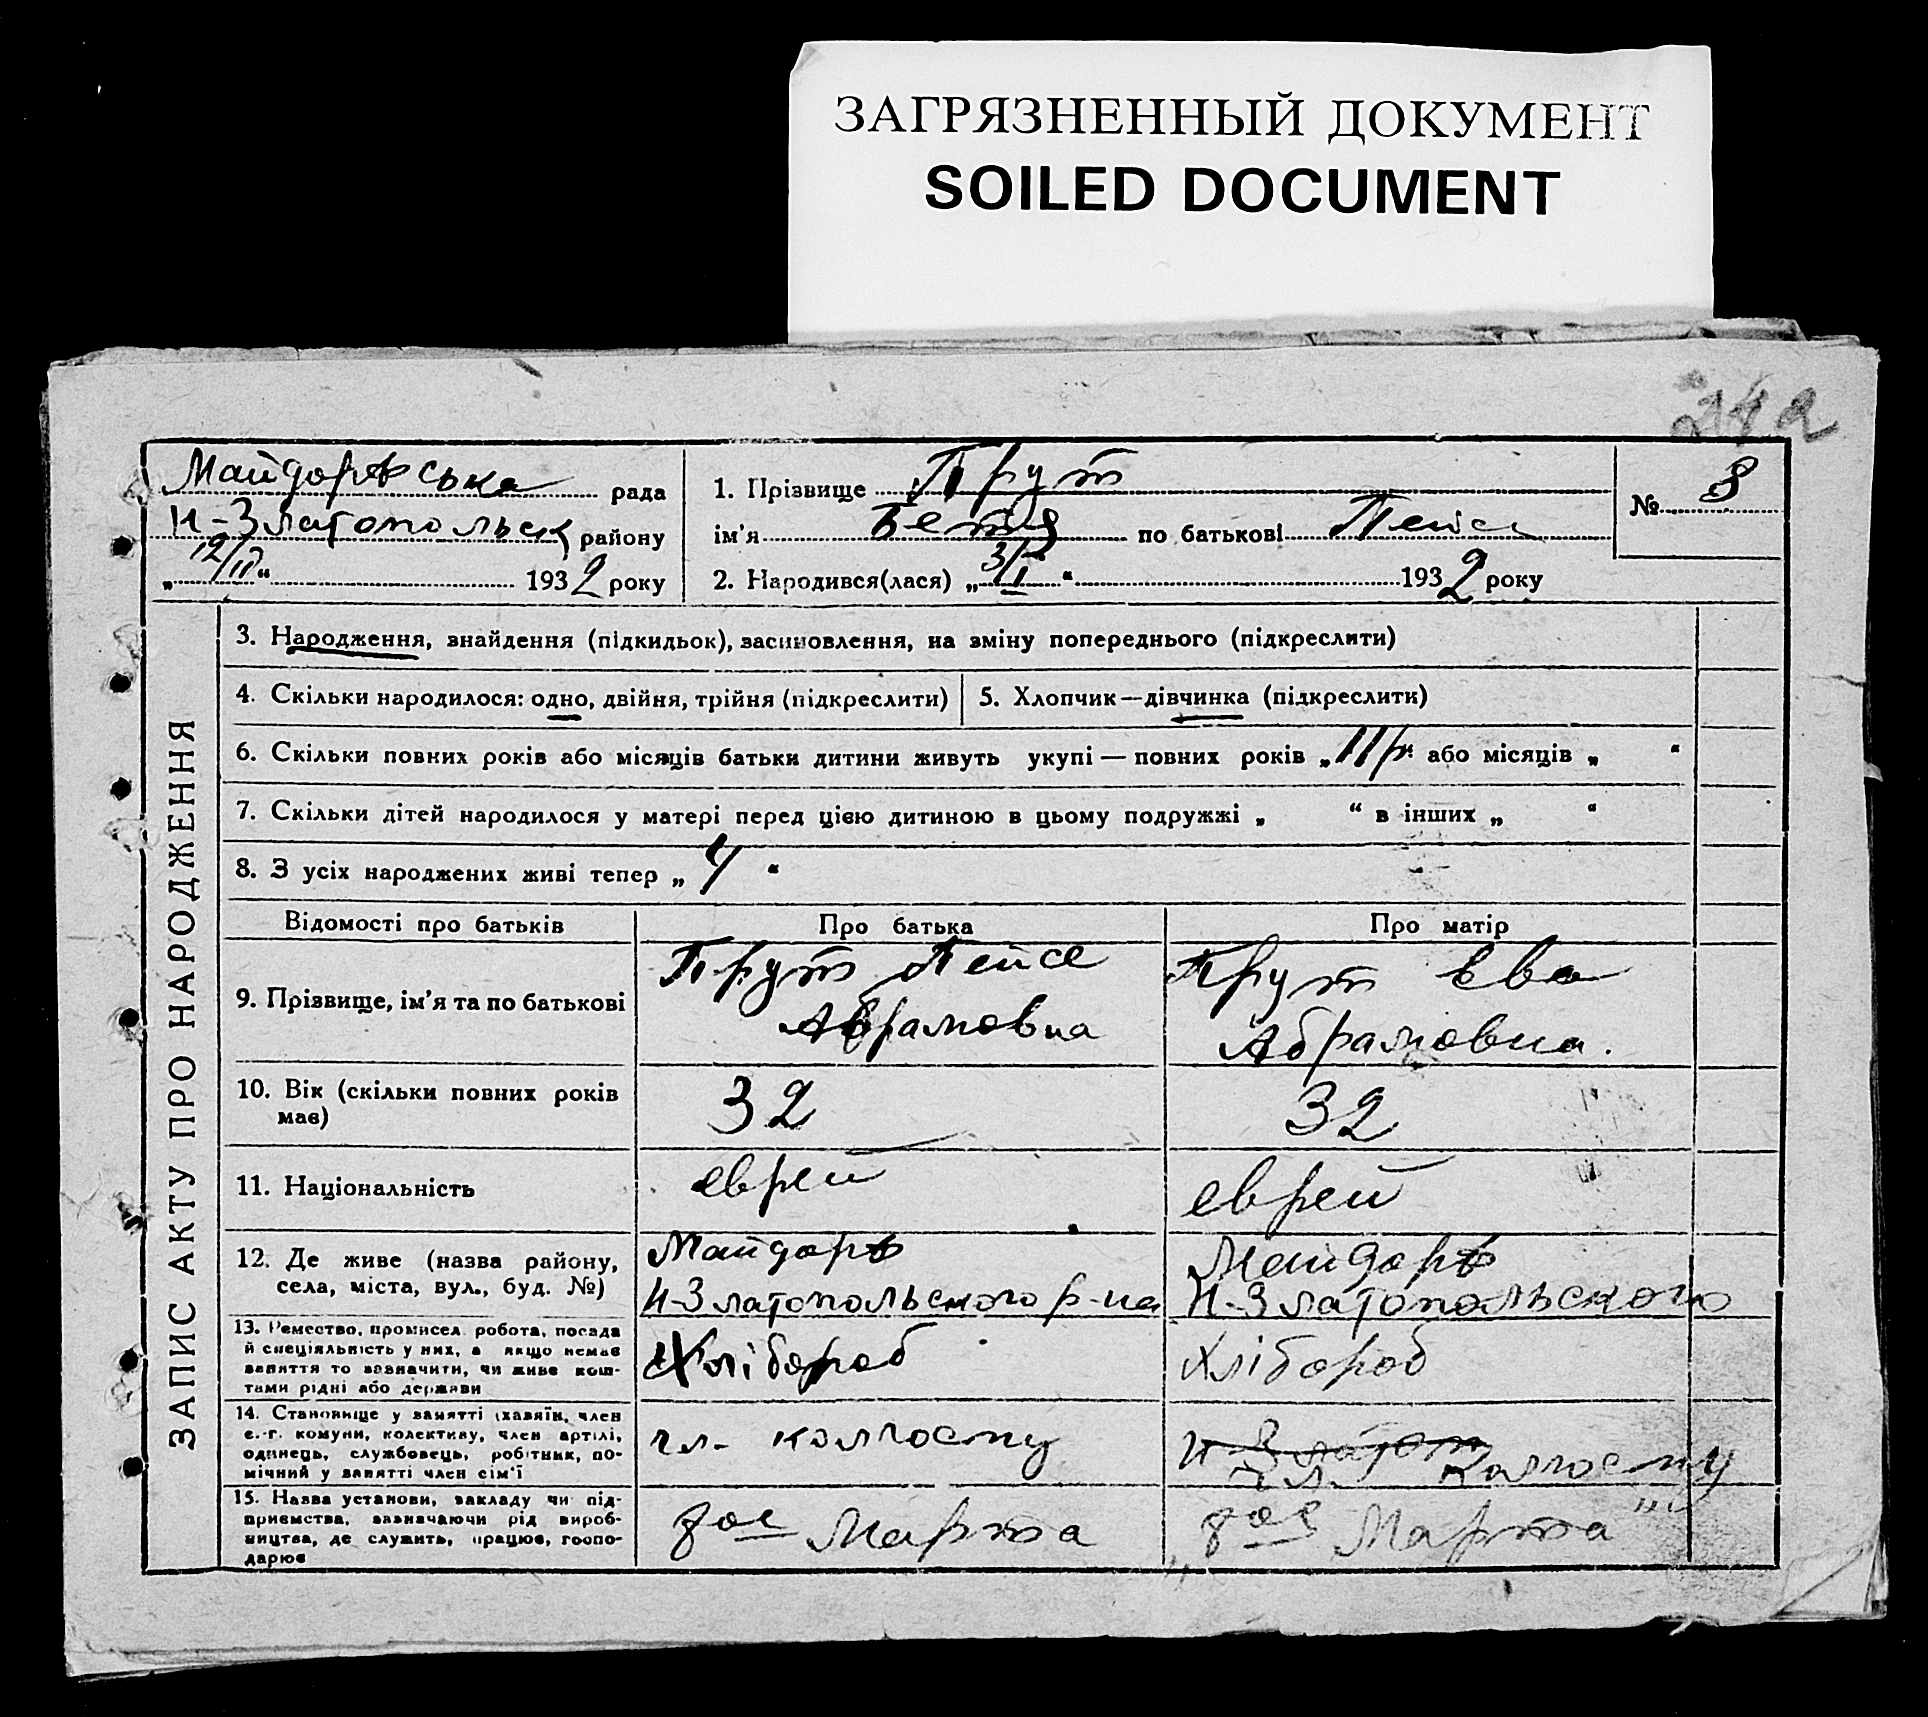 ЗАГРЯЗНЕННЫЙ ДОКУМЕНТ
SOILED DOCUMENT
Майдорівська рада
Н-Златопольск району
„12/II“ 1932 року
1. Прізвище Прут
ім'я Бетя по батькові Пейси
2. Народився(лася) „3/I“ 1932 року
№ 3
ЗАПИС АКТУ ПРО НАРОДЖЕННЯ
3. Народження, знайдення (підкидьок), засиновлення, на зміну попереднього (підкреслити)
4. Скільки народилося: одно, двійня, трійня (підкреслити)
5. Хлопчик—дівчинка (підкреслити)
6. Скільки повних років або місяців батьки дитини живуть укупі — повних років „11 р.“ або місяців „ “
7. Скільки дітей народилося у матері перед цією дитиною в цьому подружжі „ “ в інших „ “
8. З усіх народжених живі тепер „4“
Відомості про батьків
Про батька
Про матір
9. Прізвище, ім'я та по батькові
Прут Пейсе
Абрамовна
Прут Ева
Абрамовна.
10. Вік (скільки повних років
має)
32
32
11. Національність
еврей
еврей
12. Де живе (назва району,
села, міста, вул., буд. №)
Майдорф
Н-Златопольского р-на
Майдорф
Н-Златопольского
13. Ремество, промисел, робота, посада
й спеціяльність у них, а якщо немає
заняття то зазначити, чи живе кош-
тами рідні або держави
Хлібороб
Хлібороб
14. Становище у занятті (хазяїн, член
с.-г. комуни, колективу, член артілі,
одинець, службовець, робітник, по-
мічний у занятті член сім'ї
чл. колгоспу
Н-Златоп
чл. колгоспу
15. Назва установи, закладу чи під-
приємства, зазначаючи рід вироб-
ництва, де служить, працює, госпо-
дарює
8ое Марта
„8ое Марта“